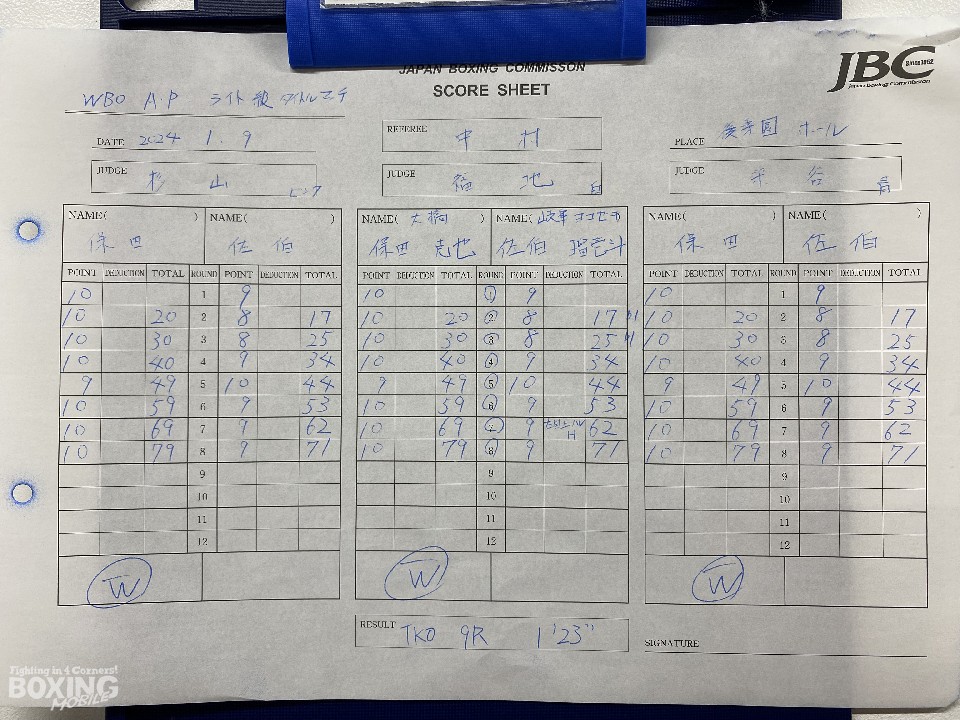 JAPAN BOXING COMMISSON
SCORE SHEET
JBC Since1952
Japan Boxing Commission
WBO A.P ライト級 タイトルマッチ
DATE 2024 1.9
REFEREE 中村
PLACE 後楽園 ホール
JUDGE 杉山 ピンク
JUDGE 福地 白
JUDGE 米谷 青
NAME( ) NAME( ) NAME( 大橋 ) NAME( ) NAME( ) NAME( )
保田 佐伯 保田 克也 佐伯 瑠壱斗 保田 佐伯
POINT DEDUCTION TOTAL ROUND POINT DEDUCTION TOTAL POINT DEDUCTION TOTAL ROUND POINT DEDUCTION TOTAL POINT DEDUCTION TOTAL ROUND POINT DEDUCTION TOTAL
10 1 9 10 1 9 10 1 9
10 20 2 8 17 10 20 2 8 17 10 20 2 8 17
10 30 3 8 25 10 30 3 8 25 10 30 3 8 25
10 40 4 9 34 10 40 4 9 34 10 40 4 9 34
9 49 5 10 44 9 49 5 10 44 9 49 5 10 44
10 59 6 9 53 10 59 6 9 53 10 59 6 9 53
10 69 7 9 62 10 69 7 9 62 10 69 7 9 62
10 79 8 9 71 10 79 8 9 71 10 79 8 9 71
9 9 9
10 10 10
11 11 11
12 12 12
W W W
RESULT TKO 9R 1'23"
SIGNATURE
Fighting in 4 Corners!
BOXING
MOBILE